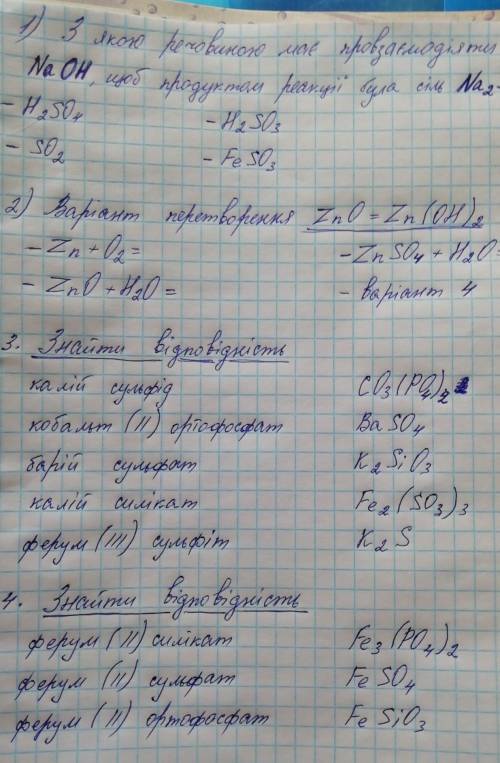 1) З якою речовиною має провзаємодіяти
NaOH, щоб продуктом реакції була сіль Na₂-
- H₂SO₄ - H₂SO₃
- SO₂ - FeSO₃
2) Варіант перетворення ZnO = Zn(OH)₂
- Zn + O₂ = - ZnSO₄ + H₂O =
- ZnO + H₂O = - варіант 4
3. Знайти відповідність
калій сульфід CO₃(PO₄)₂
кобальт (II) ортофосфат BaSO₄
барій сульфат K₂SiO₃
калій силікат Fe₂(SO₃)₃
ферум (III) сульфіт K₂S
4. Знайти відповідність
ферум (II) силікат Fe₃(PO₄)₂
ферум (II) сульфат FeSO₄
ферум (II) ортофосфат FeSiO₃